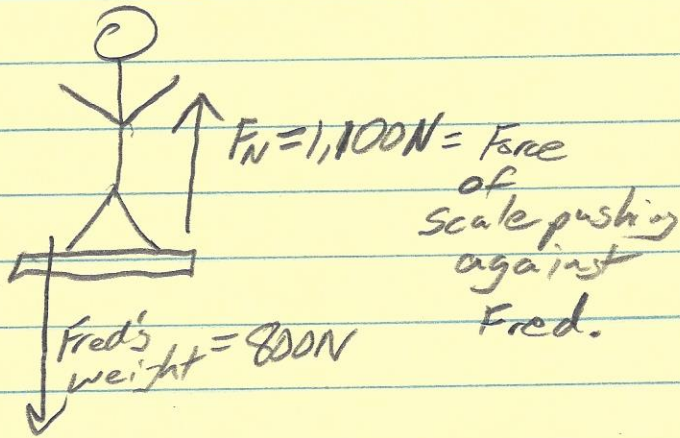 F_N = 1,100N = Force
of
scale pushing
against
Fred.
Fred's
weight = 800N